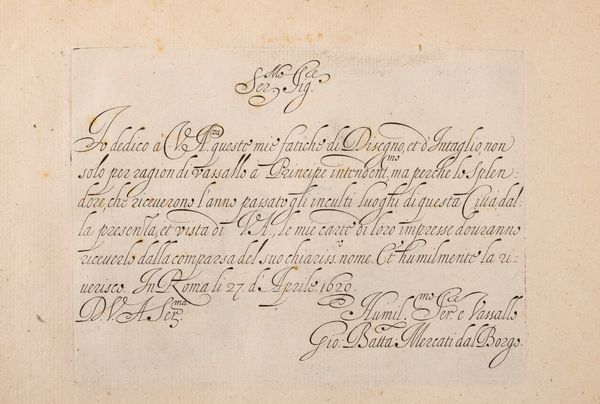 Ser.mo Sig.re
Io dedico à V. A.za queste mie fatiche di Disegno, et d'Intaglio, non
solo per ragion di vassallo à Principe intendent.mo, ma perche lo splen-
dore, che riceverono l'anno passato gli inculti luoghi di questa Città dal-
la presenza, et vista di V. A., le mie carte di loro impresse douranno
riceuerlo dalla comparsa del suo chiariss.o nome. Et humilmente la ri-
uerisco. In Roma li 27. d'Aprile. 1629.
D. V. A. Ser.ma
Humil.mo Ser.re e Vassallo
Gio: Batta Mercati dal Borgo.